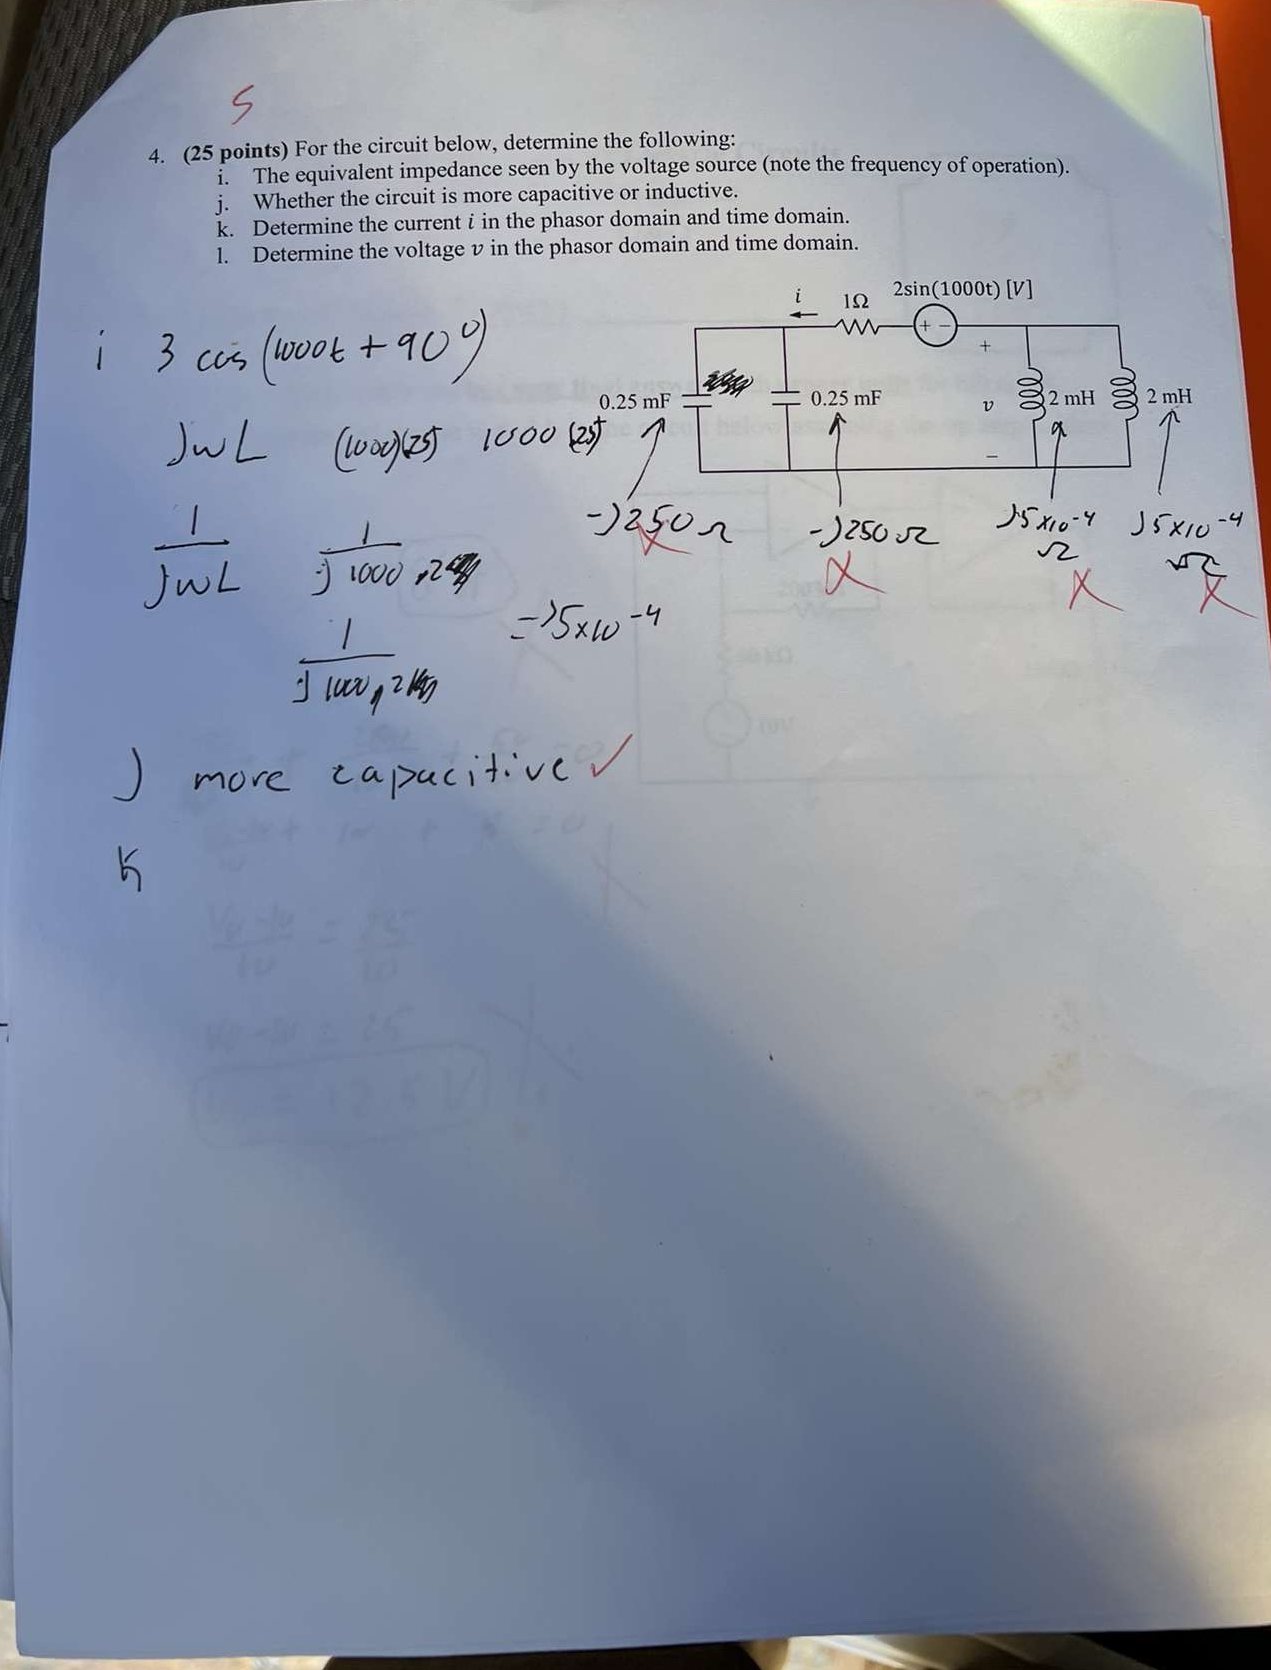 5
4. (25 points) For the circuit below, determine the following:
i. The equivalent impedance seen by the voltage source (note the frequency of operation).
j. Whether the circuit is more capacitive or inductive.
k. Determine the current i in the phasor domain and time domain.
l. Determine the voltage v in the phasor domain and time domain.
i 1Ω 2sin(1000t) [V]
+ -
i 3 cos (1000t + 90°)
+
0.25 mF 0.25 mF v 2 mH 2 mH
-
JwL (1000)(25) 1000 (25)
-j250Ω -j250Ω j5x10-4 Ω j5x10-4 Ω
x x x x
1/JwL 1/j 1000 .2
=j5x10-4
1/j 1000 .2
J more capacitive ✓
k